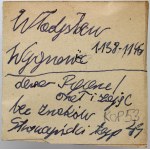 Władysław
Wygnaniec 1138-1146
denar
orzeł i zając
bez znaków KOP.53
Stronczyński typ